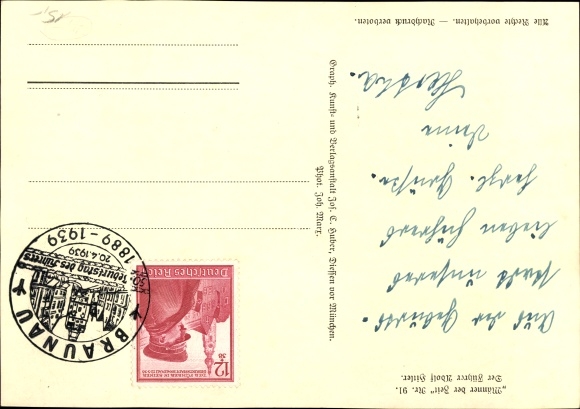 „Männer der Zeit" Nr. 91.
Der Führer Adolf Hitler.
Aus der Geburts-
stadt unseres
lieben Führers
herzl. Grüße.
Deine
Graph. Kunst- und Verlagsanstalt Jos. C. Huber, Diessen vor München.
Phot. Joh. Marx.
Alle Rechte vorbehalten. — Nachdruck verboten.
BRAUNAU
1889-1939
20.4.1939
Geburtstag des Führers
Deutsches Reich
12+38
DER FÜHRER IN SEINER